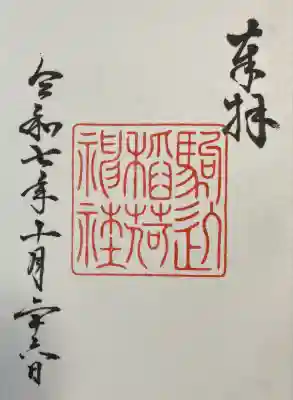 奉拝
駒込
稲荷
神社
令和七年十月二十六日